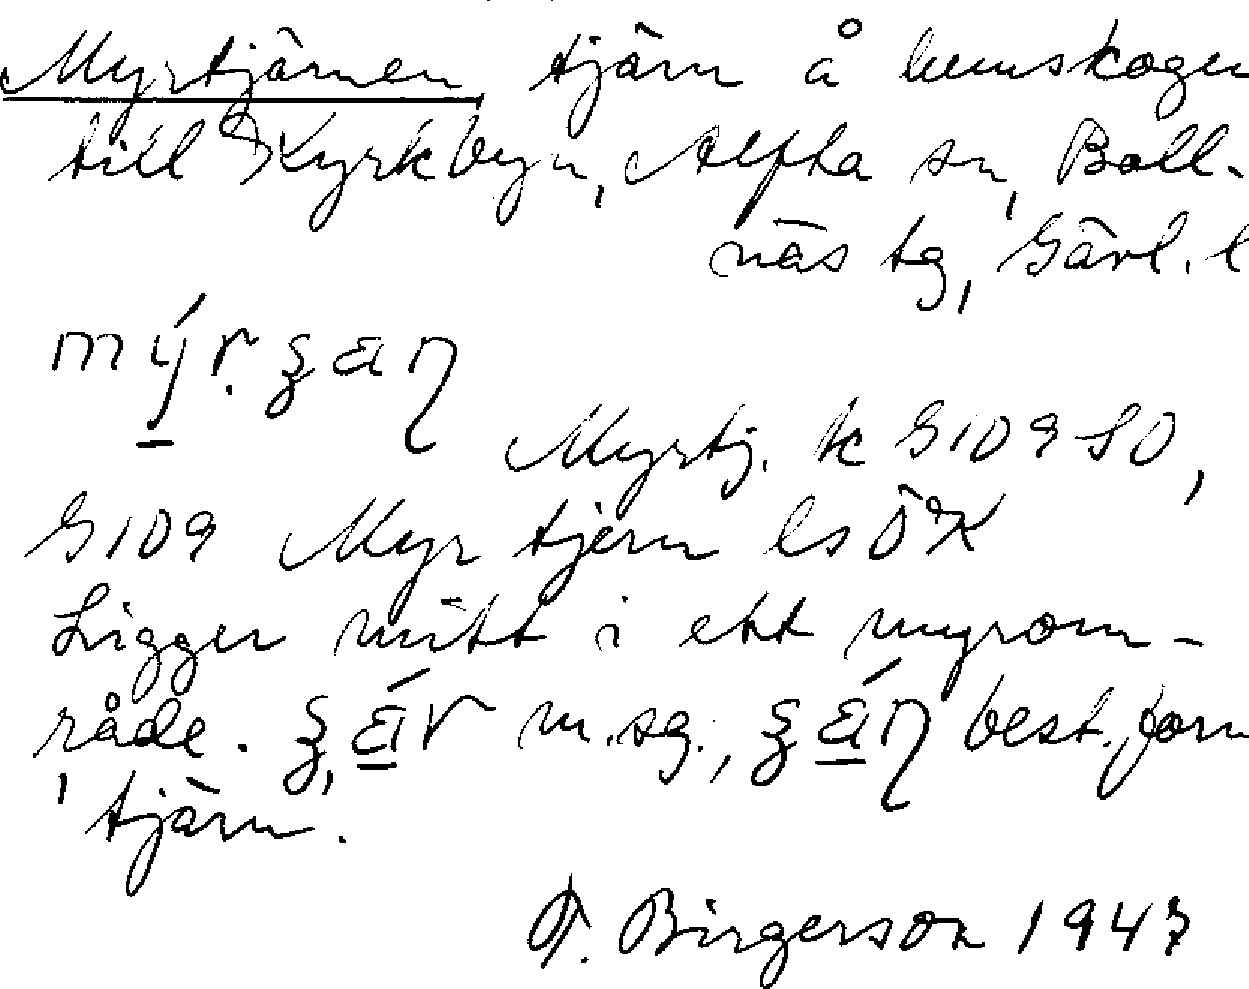 Myrtjärnen, tjärn å hemskogen
till Kyrkbyn, Alfta sn, Boll-
näs tg, Gävl. l
Myrtj. k G109 SO,
G109 Myrtjern ls ÖK
Ligger mitt i ett myrom-
råde. m.sg., best. form
tjärn.
Birgerson 1947